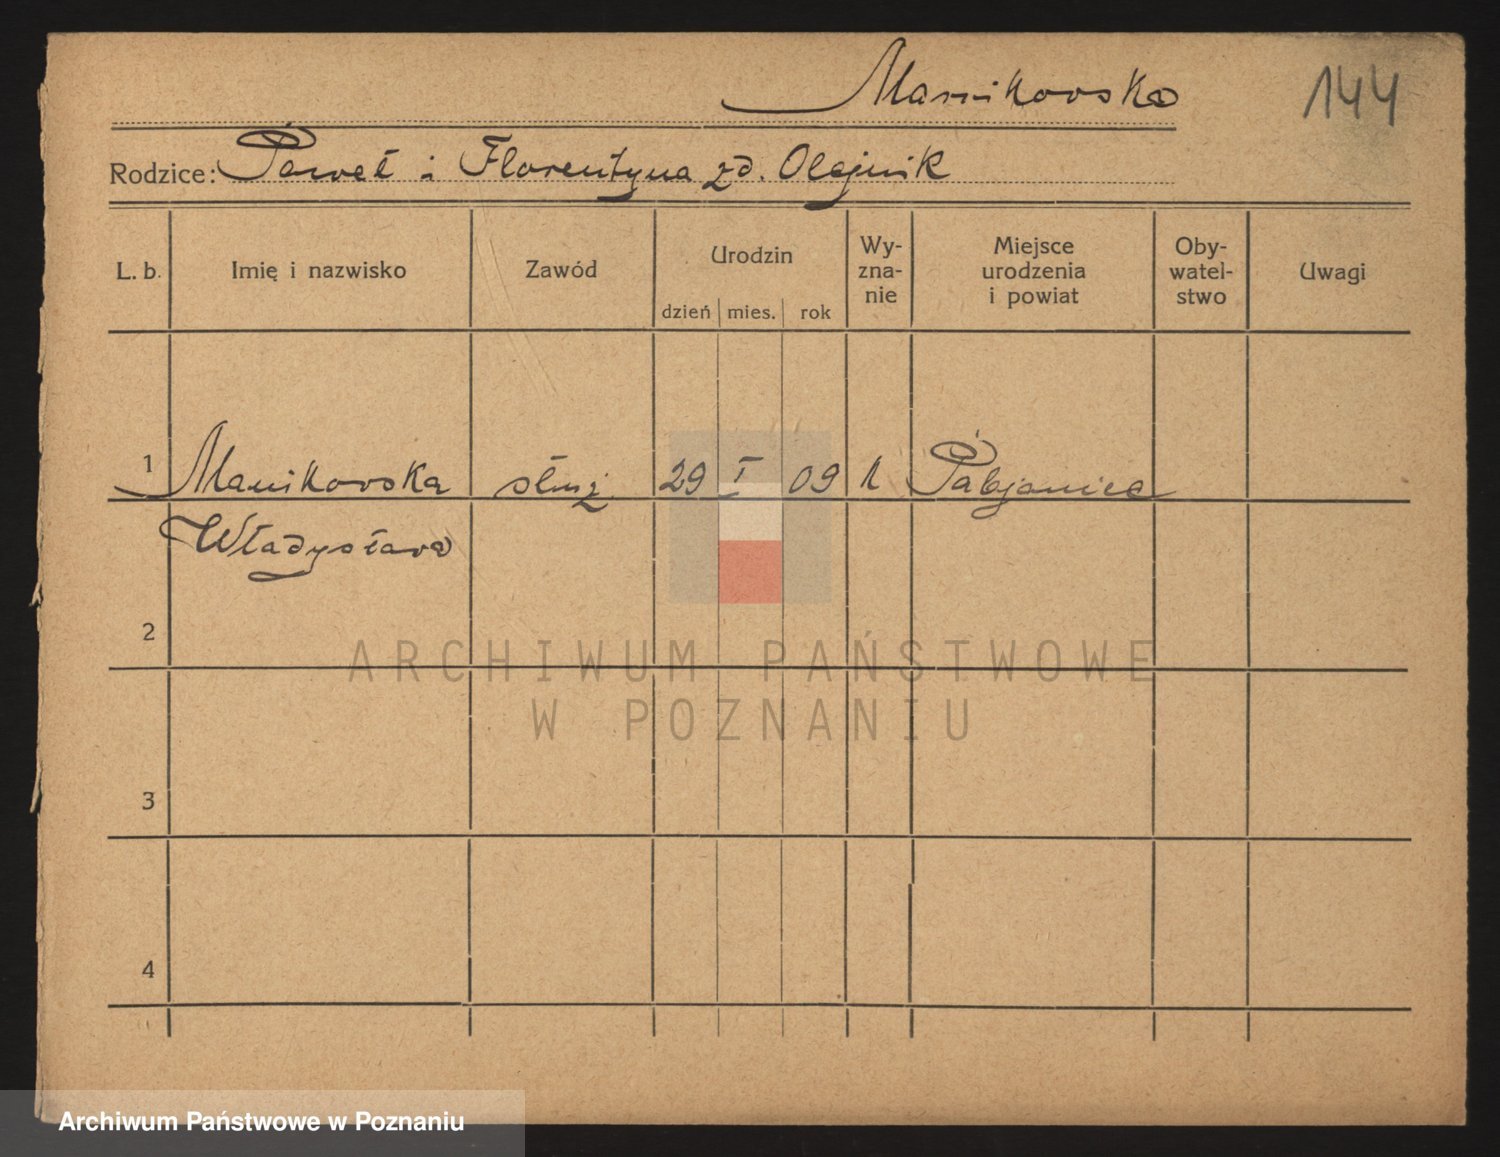 Manikowska
144
Rodzice: Paweł i Florentyna zd. Olejnik
L. b. Imię i nazwisko Zawód Urodzin dzień mies. rok Wy-zna-nie Miejsce urodzenia i powiat Oby-watel-stwo Uwagi
1 Manikowska służ. 29 I 09 k Pabjanice
Władysława
2
3
4
ARCHIWUM PAŃSTWOWE
W POZNANIU
Archiwum Państwowe w Poznaniu